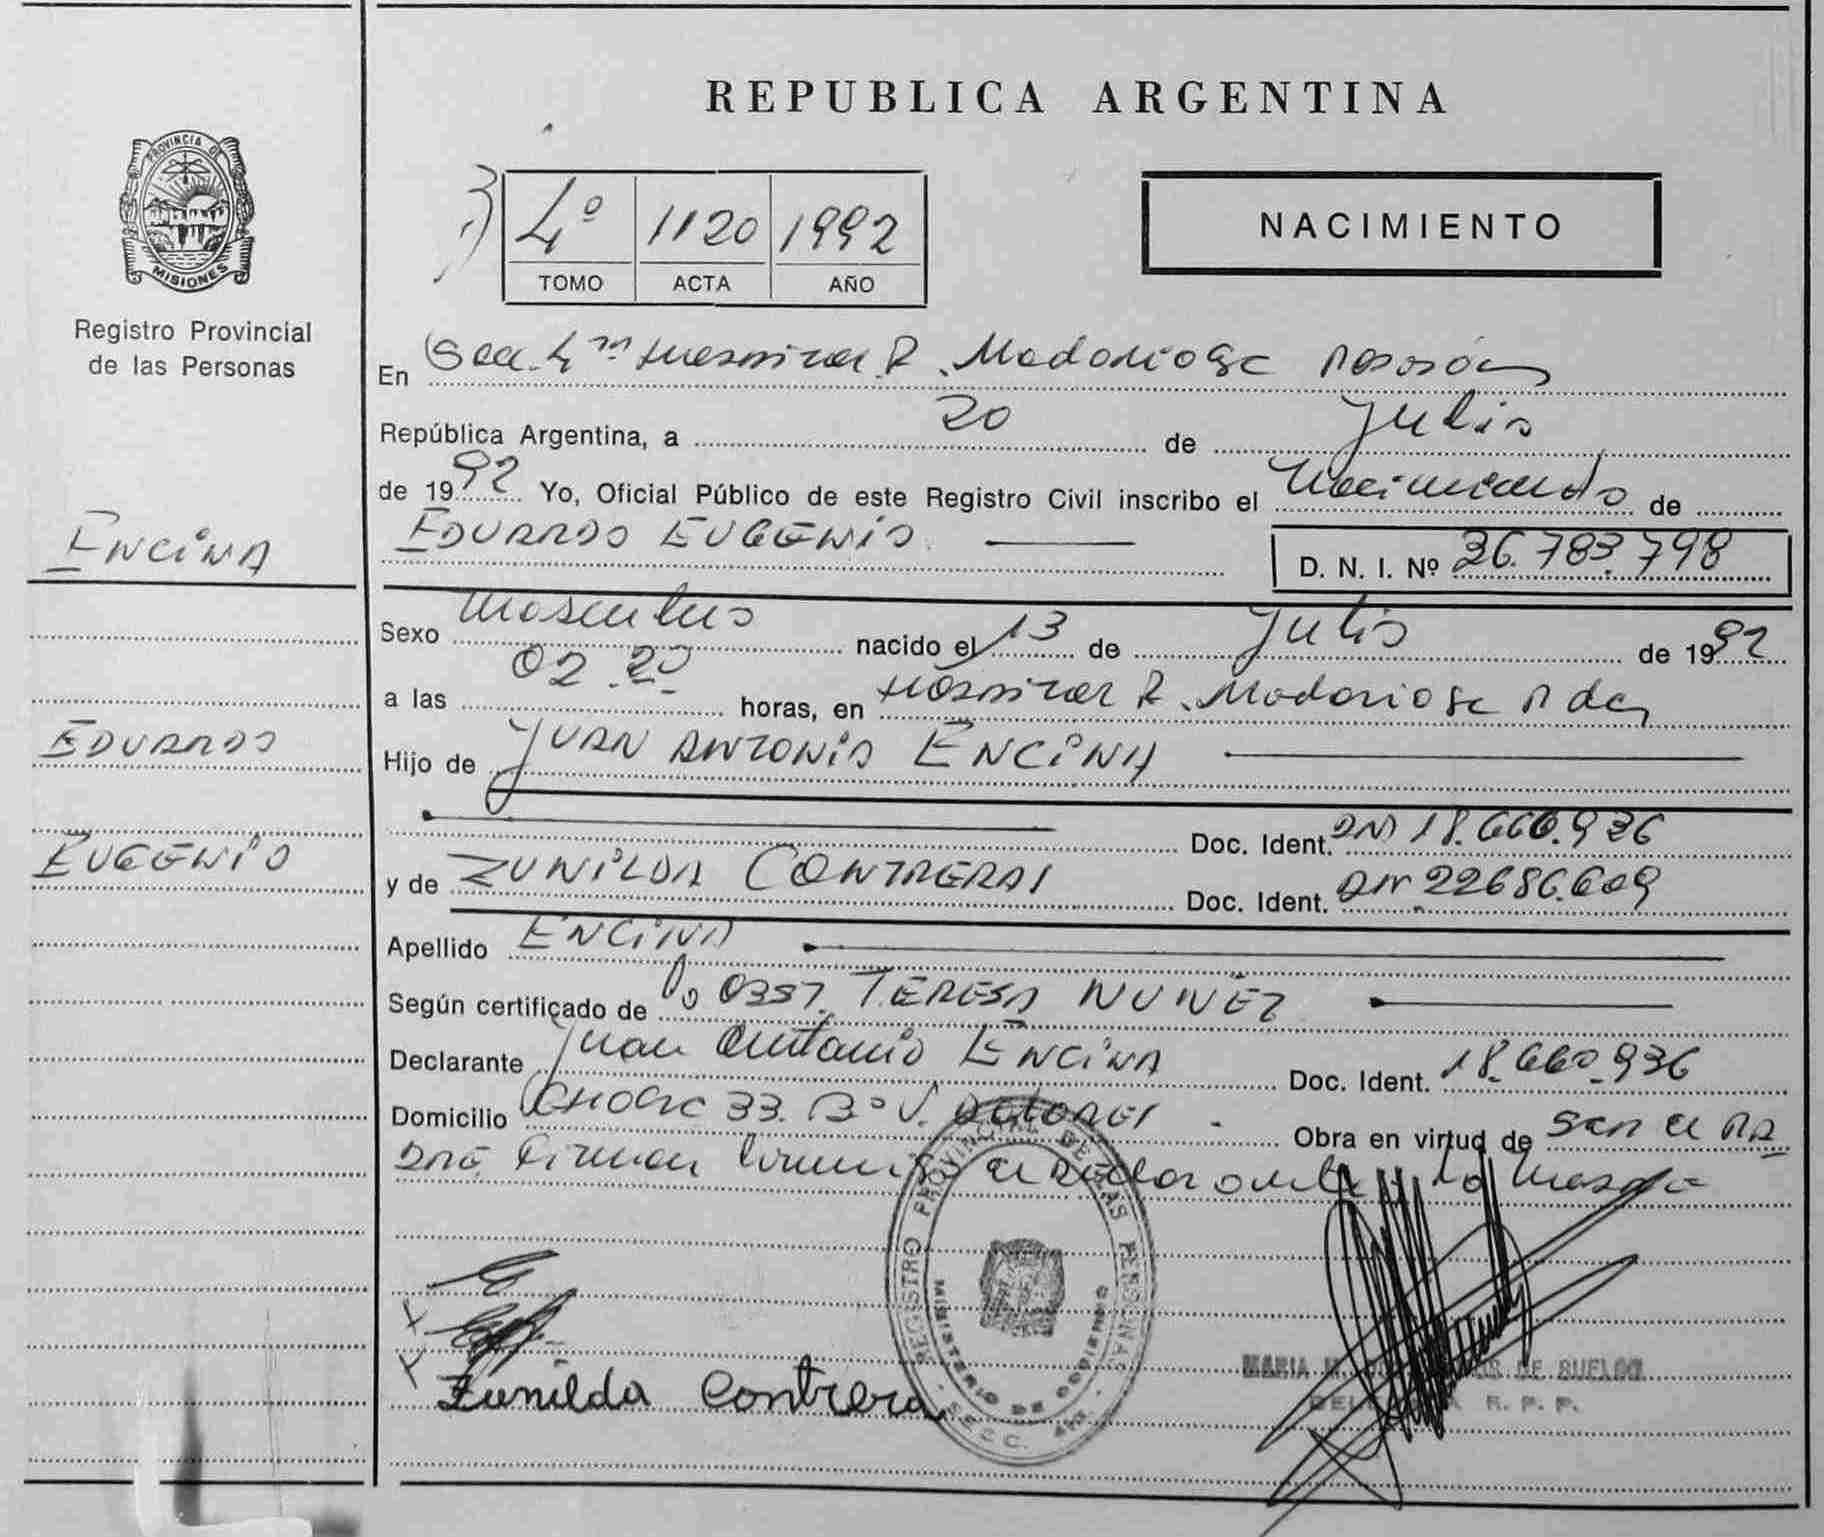 REPUBLICA ARGENTINA
PROVINCIA DE MISIONES
Registro Provincial
de las Personas
4º 1120 1992
TOMO ACTA AÑO
NACIMIENTO
En Secc. 4ta Hospital R. Madariaga Posadas
República Argentina, a 20 de Julio
de 1992 Yo, Oficial Público de este Registro Civil inscribo el Nacimiento de
ENCINA
EDUARDO EUGENIO
D. N. I. Nº 36.783.798
Sexo Masculino nacido el 13 de Julio de 1992
a las 02.20 horas, en Hospital R. Madariaga Pdas
EDUARDO
Hijo de JUAN ANTONIO ENCINA
Doc. Ident. DNI 18.660.936
EUGENIO
y de ZUNILDA CONTRERAS Doc. Ident. 22686.609
Apellido ENCINA
Según certificado de 0357. TERESA NUÑEZ
Declarante Juan Antonio ENCINA Doc. Ident. 18.660.936
Domicilio 33. Bº V. DOLORES Obra en virtud de ser el PA
DRE Firman el Declarante y la Madre
REGISTRO PROVINCIAL DE LAS PERSONAS
MINISTERIO DE GOBIERNO
SECC. 4ta.
Zunilda Contrera
MARIA DE BUELOW
R. P. P.